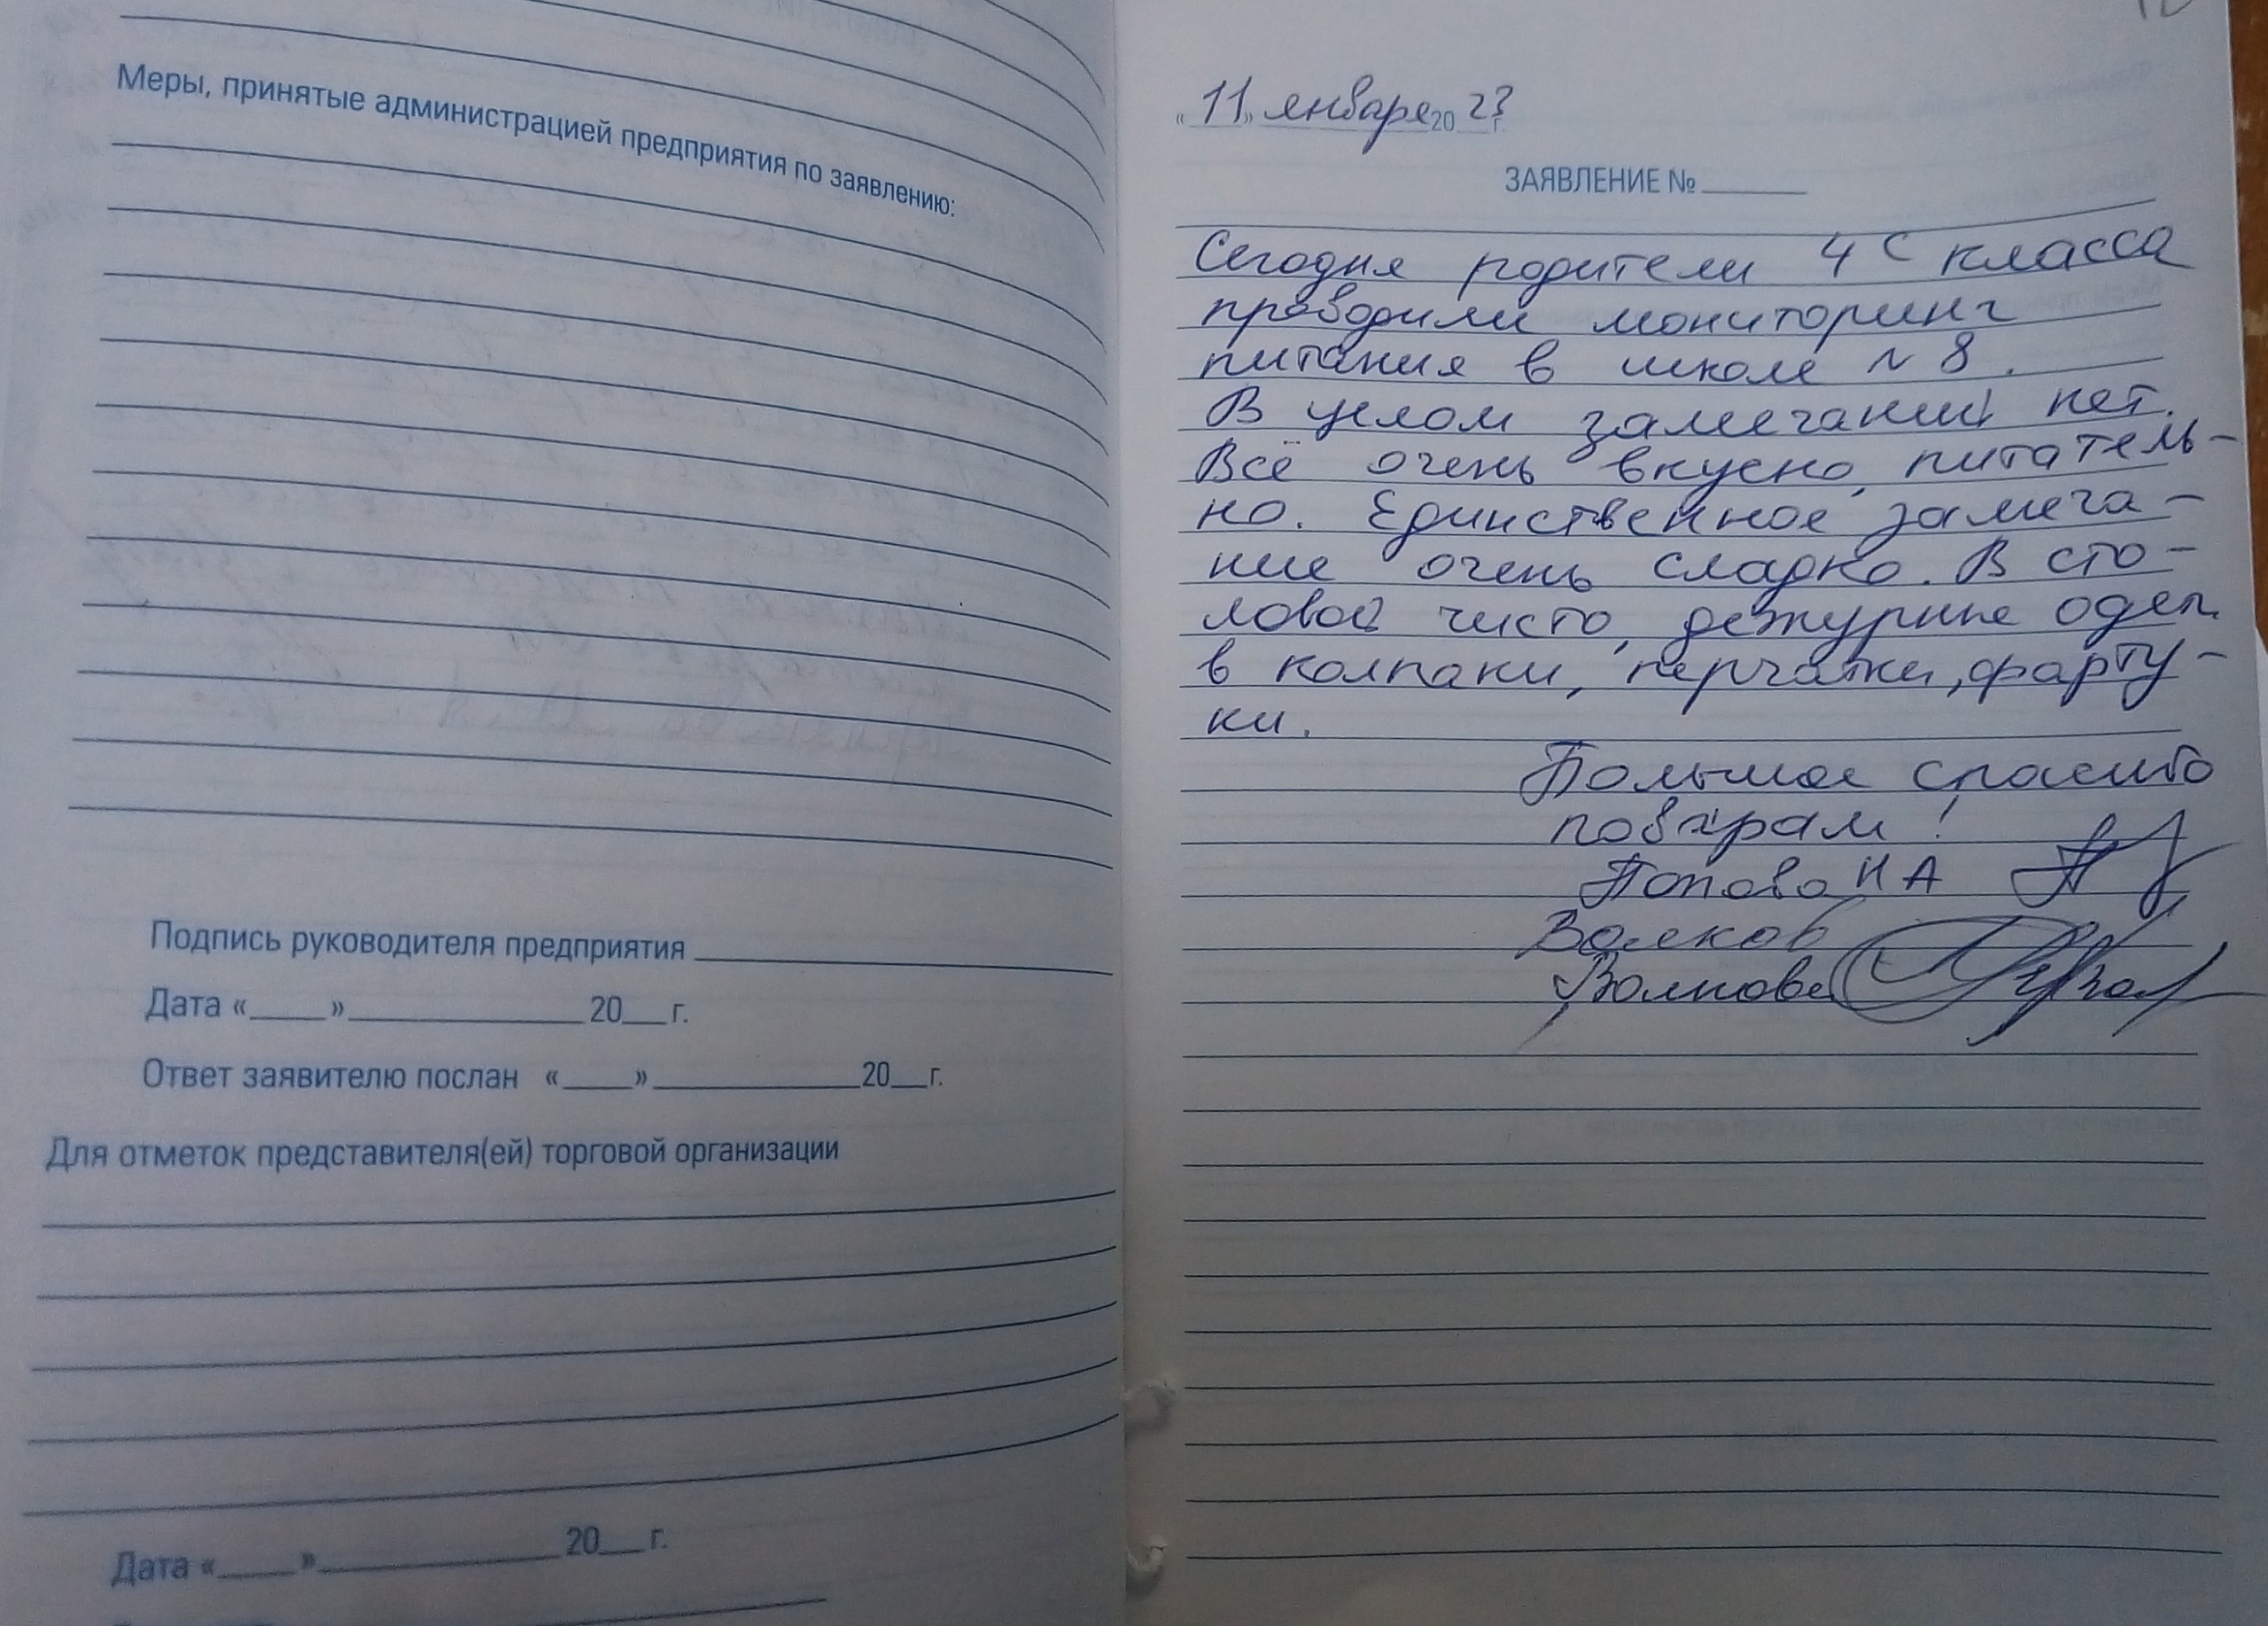 Меры, принятые администрацией предприятия по заявлению:
Подпись руководителя предприятия
Дата «____»____________20___г.
Ответ заявителю послан «____»____________20___г.
Для отметок представителя(ей) торговой организации
Дата «____»____________20___г.
«11» января 2023 г.
ЗАЯВЛЕНИЕ №
Сегодня родители 4 С класса
проводили мониторинг
питания в школе N 8.
В целом замечаний нет.
Всё очень вкусно, питатель-
но. Единственное замеча-
ние очень сладко. В сто-
ловой чисто, дежурные одел
в колпаки, перчатки, фарту-
ки.
Большое спасибо
поварам!
Попова Н А
Волков
Волкова